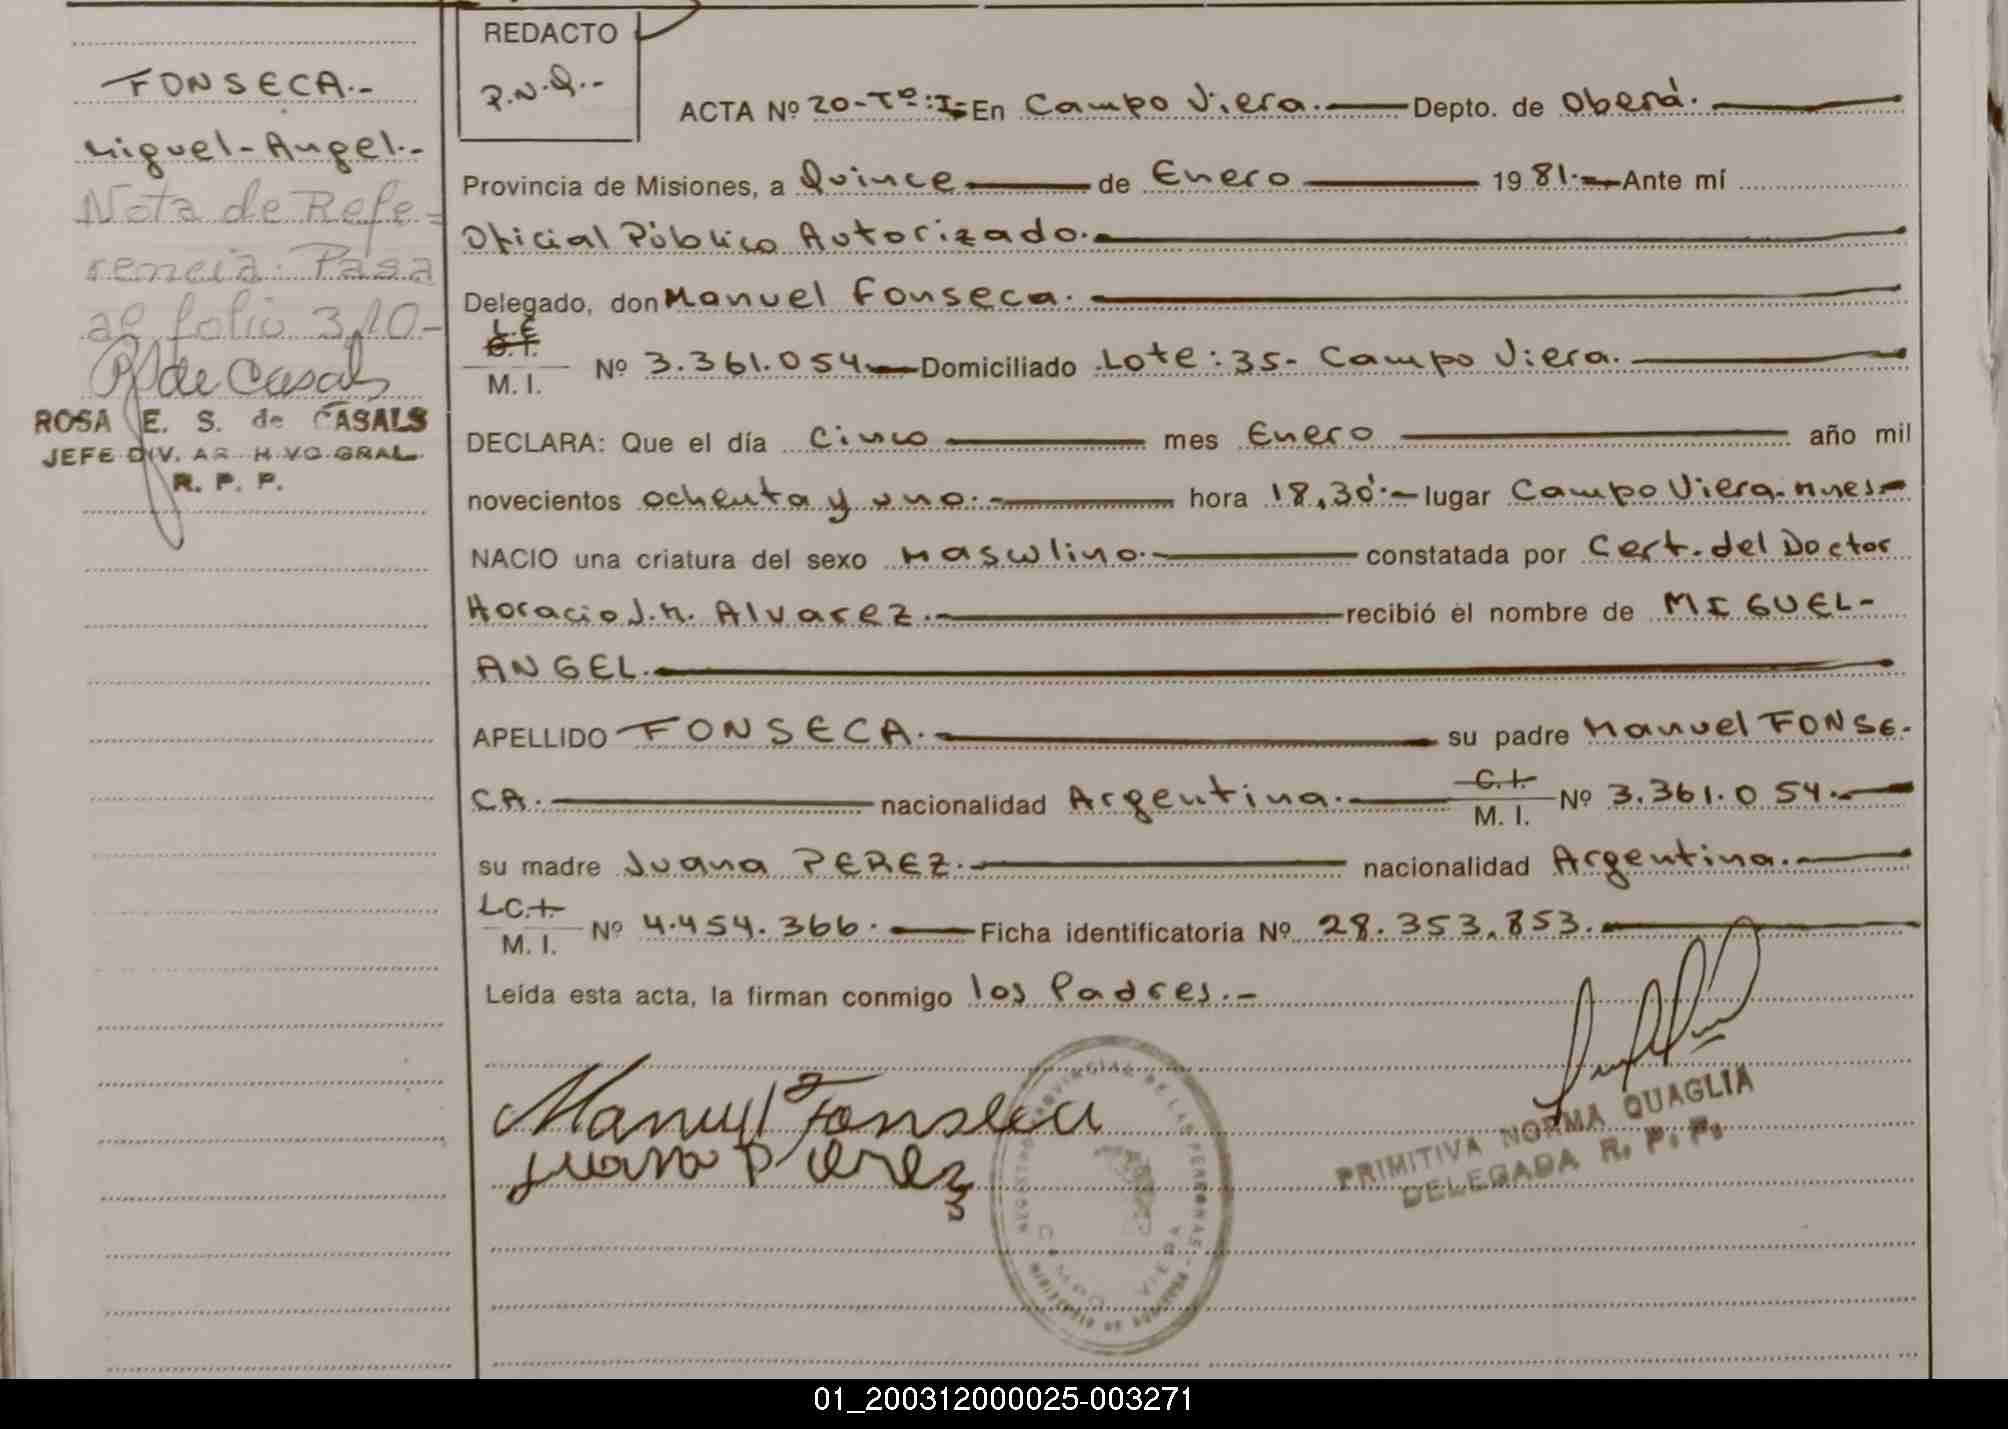 FONSECA.-
Miguel-Angel.-
Nota de Refe-
rencia: Pasa
al folio 310-
R S de Casals
ROSA E. S. de CASALS
JEFE DIV. AR H VO GRAL.
R. P. P.
REDACTO
P.N.Q.-
ACTA Nº 20-Tº:I- En Campo Viera. Depto. de Oberá.
Provincia de Misiones, a Quince de Enero 1981.- Ante mí
Oficial Público Autorizado.
Delegado, don Manuel Fonseca.
L.E
C.I.
M. I. Nº 3.361.054 Domiciliado Lote: 35- Campo Viera.
DECLARA: Que el día cinco mes Enero año mil
novecientos ochenta y uno.- hora 18,30'.- lugar Campo Viera. Mnes-
NACIO una criatura del sexo Masculino.- constatada por Cert. del Doctor
Horacio J.M. Alvarez.- recibió el nombre de MIGUEL-
ANGEL.
APELLIDO FONSECA.- su padre Manuel FONSE-
CA. nacionalidad Argentina. C.I. M. I. Nº 3.361.054.
su madre Juana PEREZ.- nacionalidad Argentina.
L.C.I. M. I. Nº 4.454.366. Ficha identificatoria Nº 28.353.853.
Leída esta acta, la firman conmigo los Padres.-
Manuel Fonseca
Juana Perez
REGISTRO PROVINCIAL DE LAS PERSONAS
CAMPO VIERA
PRIMITIVA NORMA QUAGLIA
DELEGADA R. P. P.
01_200312000025-003271